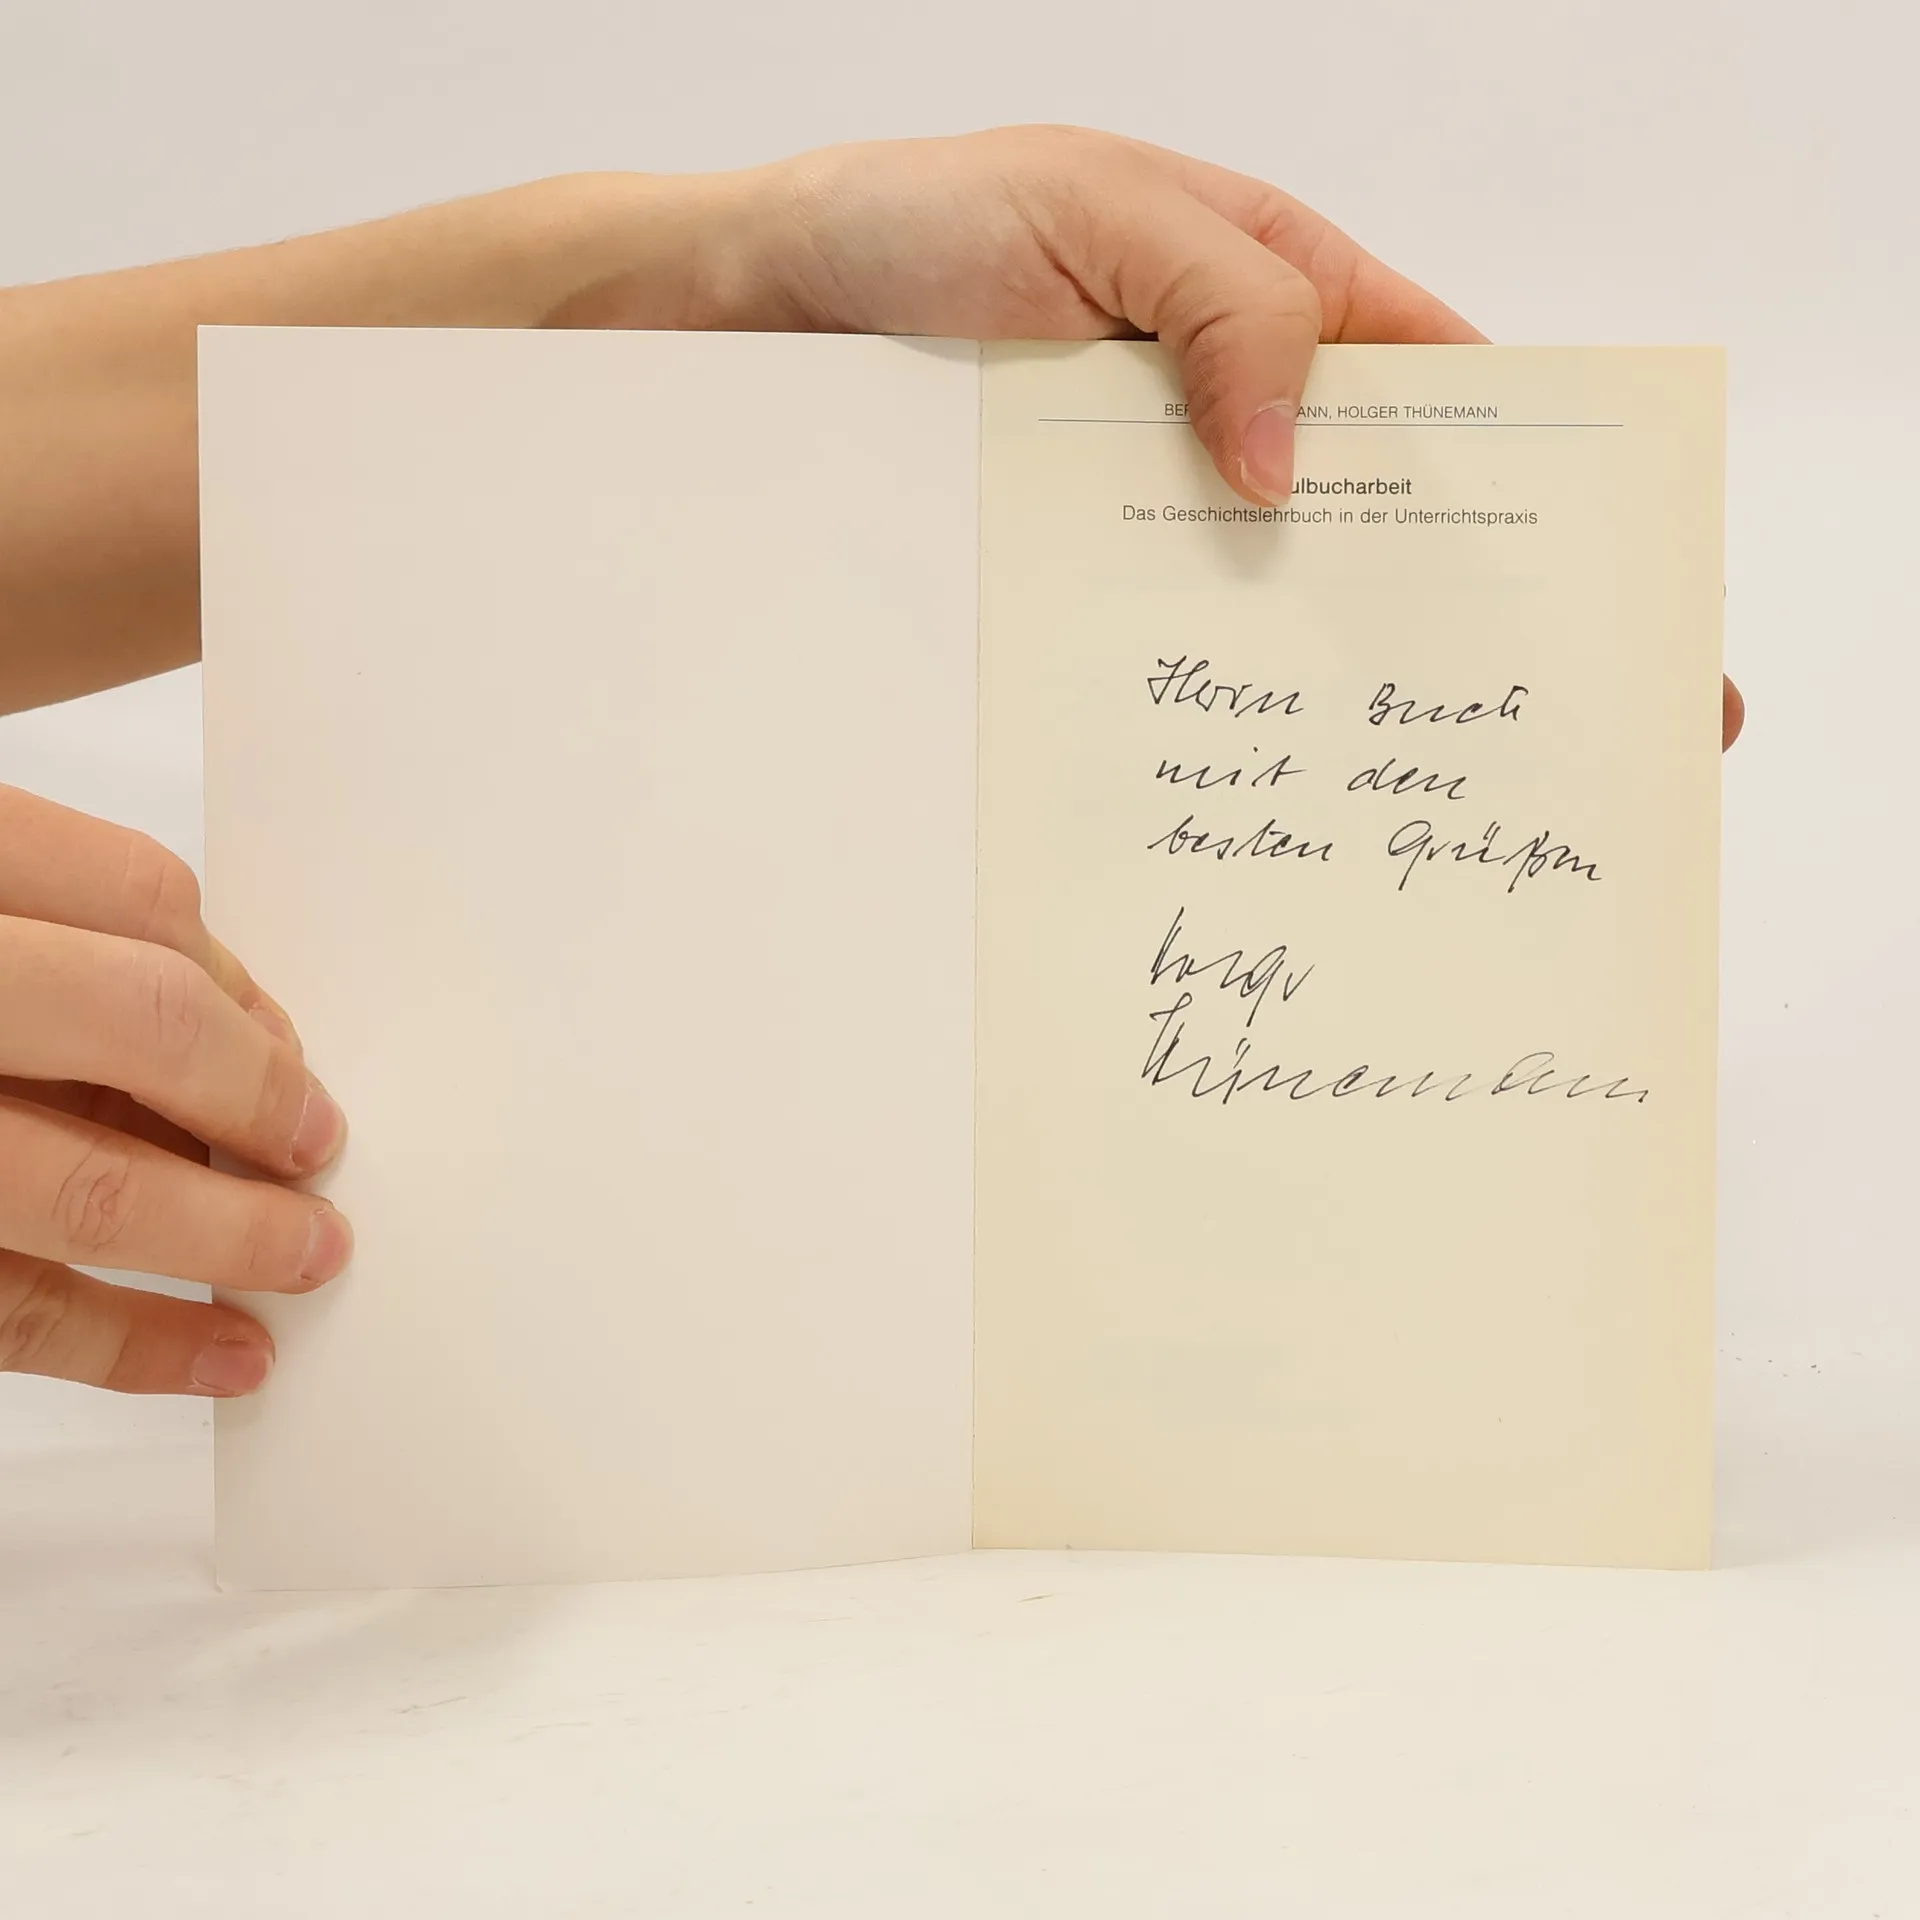 BER ANN, HOLGER THÜNEMANN
ulbucharbeit
Das Geschichtslehrbuch in der Unterrichtspraxis
Herrn Buck
mit den
besten Grüßen
Holger
Thünemann